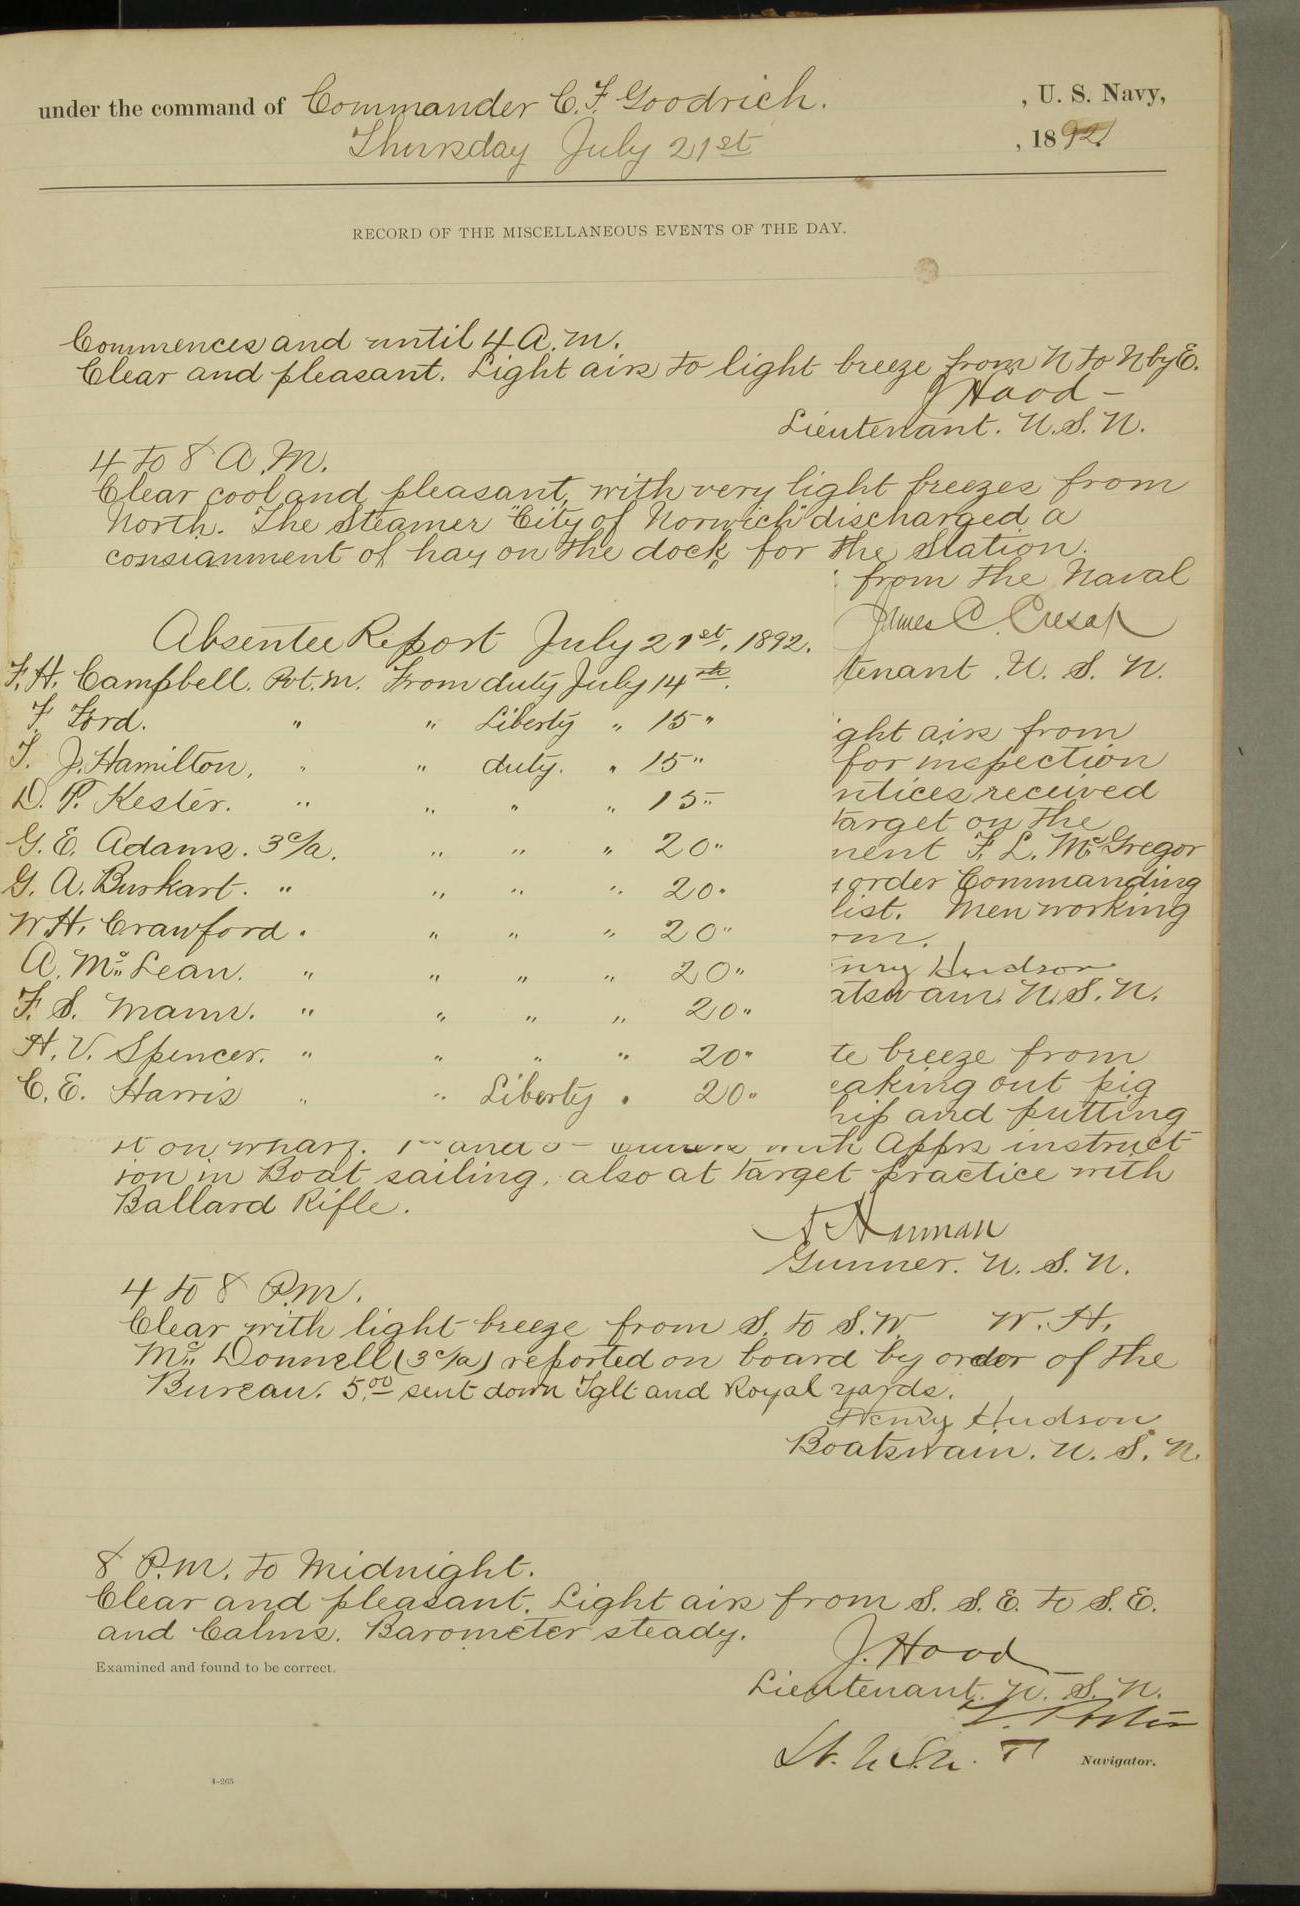 under the command of Commander C. F. Goodrich. , U. S. Navy,
Thursday July 21st , 1892.
RECORD OF THE MISCELLANEOUS EVENTS OF THE DAY.
Commences and until 4 A.M.
Clear and pleasant. Light airs to light breeze from N to N by E.
J Hood -
Lieutenant. U.S.N.
4 to 8 A.M.
Clear cool and pleasant, with very light breezes from
North. The Steamer "City of Norwich" discharged a
consignment of hay on the dock for the Station.
from the Naval
James C. Cresap
tenant U. S. N.
Absentee Report July 21st, 1892.
F. H. Campbell. Pvt. M. From duty July 14th.
F. Ford. " " Liberty " 15 "
T. J. Hamilton, " " duty. " 15 "
D. P. Kester. " " " " 15 "
G. E. Adams. 3 c/a. " " " 20 "
G. A. Burkart. " " " " 20 "
W. H. Crawford. " " " 20 "
A. Mc Lean. " " " " 20 "
F. S. Mann. " " " " 20 "
H. V. Spencer. " " " " 20 "
C. E. Harris " " Liberty " 20 "
ght airs from
for inspection
ntices received
target on the
nent F. L. McGregor
order Commanding
list. Men working
om.
nry Hudson
atswain. U.S.N.
te breeze from
eaking out pig
hip and putting
it on wharf. 1st and with Apprs instruct
ion in Boat sailing, also at target practice with
Ballard Rifle.
Gunner. U. S. N.
4 to 8 P.M.
Clear with light breeze from S. to S.W W. H.
Mc Donnell (3 c/a) reported on board by order of the
Bureau. 5.00 sent down Tglt and Royal yards.
Henry Hudson
Boatswain. U. S. N.
8 P.M. to Midnight.
Clear and pleasant. Light airs from S. S. E. to S. E.
and Calms. Barometer steady.
J. Hood
Examined and found to be correct.
Lieutenant. U. S. N.
Lt. U.S.N.
Navigator.
4-265